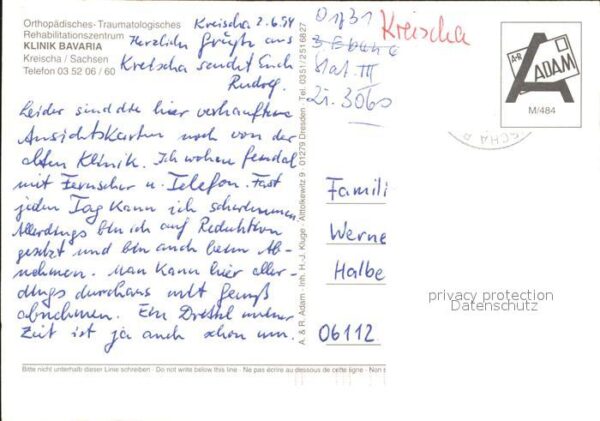 Orthopädisches-Traumatologisches
Rehabilitationszentrum
KLINIK BAVARIA
Kreischa / Sachsen
Telefon 03 52 06 / 60
Kreischa 2.6.94
Herzlich grüßt aus
Kreischa sendet Euch
Rudolf.
Leider sind die hier verkauften
Ansichtskarten noch von der
alten Klinik. Ich wohne feudal
mit Fernseher u. Telefon. Fast
jeden Tag kann ich schwimmen
Allerdings bin ich auf Reduktion
gesetzt und bin auch beim Ab-
nehmen. Man kann hier aller-
dings durchaus mit Genuß
abnehmen. Ein Drittel meiner
Zeit ist ja auch schon um.
01731
Kreischa
3 Ebene
Stat. III
Zi. 3060
A. & R. Adam · Inh. H.-J. Kluge · Alttolkewitz 9 · 01279 Dresden · Tel. 0351/2516827
A+R
ADAM
M/484
Famili
Werne
Halbe
06112
privacy protection
Datenschutz
Bitte nicht unterhalb dieser Linie schreiben · Do not write below this line · Ne pas écrire au dessous de cette ligne · Non